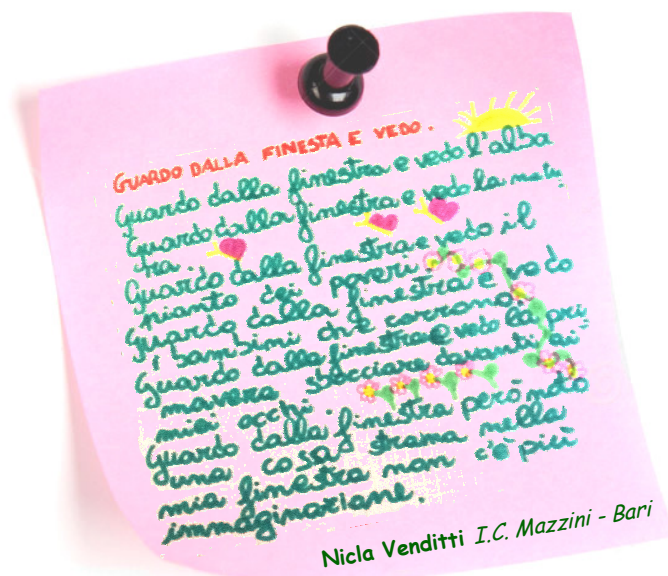 GUARDO DALLA FINESTA E VEDO.
Guardo dalla finestra e vedo l'alba
Guardo dalla finestra e vedo la natu
ra.
Guardo dalla finestra e vedo il
pianto dei poveri
Guardo dalla finestra e vedo
i bambini che corrono.
Guardo dalla finestra e vedo la pri
mavera sbocciare davanti ai
miei occhi.
Guardo dalla finestra però noto
una cosa strana nella
mia finestra non c'è più
immaginazione.
Nicla Venditti I.C. Mazzini - Bari